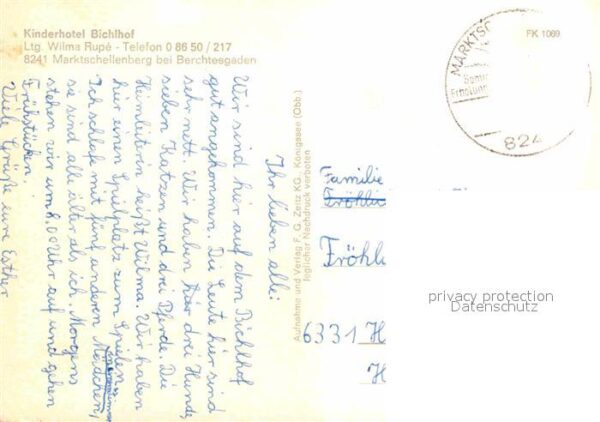 Kinderhotel Bichlhof
Ltg. Wilma Rupé - Telefon 0 86 50 / 217
8241 Marktschellenberg bei Berchtesgaden
FK 1069
MARKTSC
824
Ihr lieben alle!
Wir sind hier auf dem Bichlhof
gut angekommen. Die Leute hier sind
sehr nett. Wir haben hier drei Hunde,
sieben Katzen und drei Pferde. Die
Heimleiterin heißt Wilma. Wir haben
hier einen Spielplatz zum Spielen.
Ich schlafe mit fünf anderen Mädchen,
sie sind alle älter als ich. Morgens
stehen wir um 8.00 Uhr auf und gehen
Frühstücken
Viele Grüße eure Esther
Aufnahme und Verlag F. G. Zeitz KG., Königssee (Obb.)
Jeglicher Nachdruck verboten
Familie
Fröhlic
Fröhle
6331 H
H
privacy protection
Datenschutz